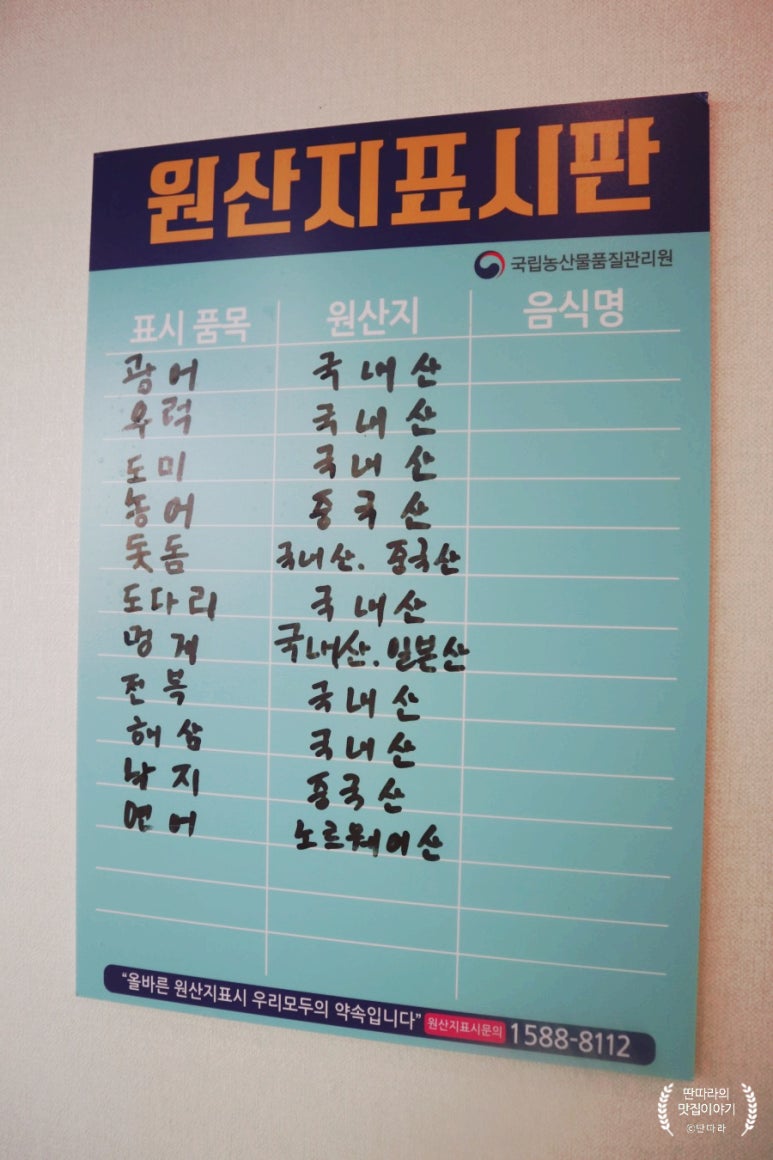 원산지표시판
국립농산물품질관리원
표시 품목 원산지 음식명
광어 국내산
우럭 국내산
도미 국내산
농어 중국산
돗돔 국내산. 중국산
도다리 국내산
멍게 국내산. 일본산
전복 국내산
해삼 국내산
낙지 중국산
연어 노르웨이산
"올바른 원산지표시 우리모두의 약속입니다" 원산지표시문의 1588-8112
딴따라의
맛집이야기
ⓒ딴따라